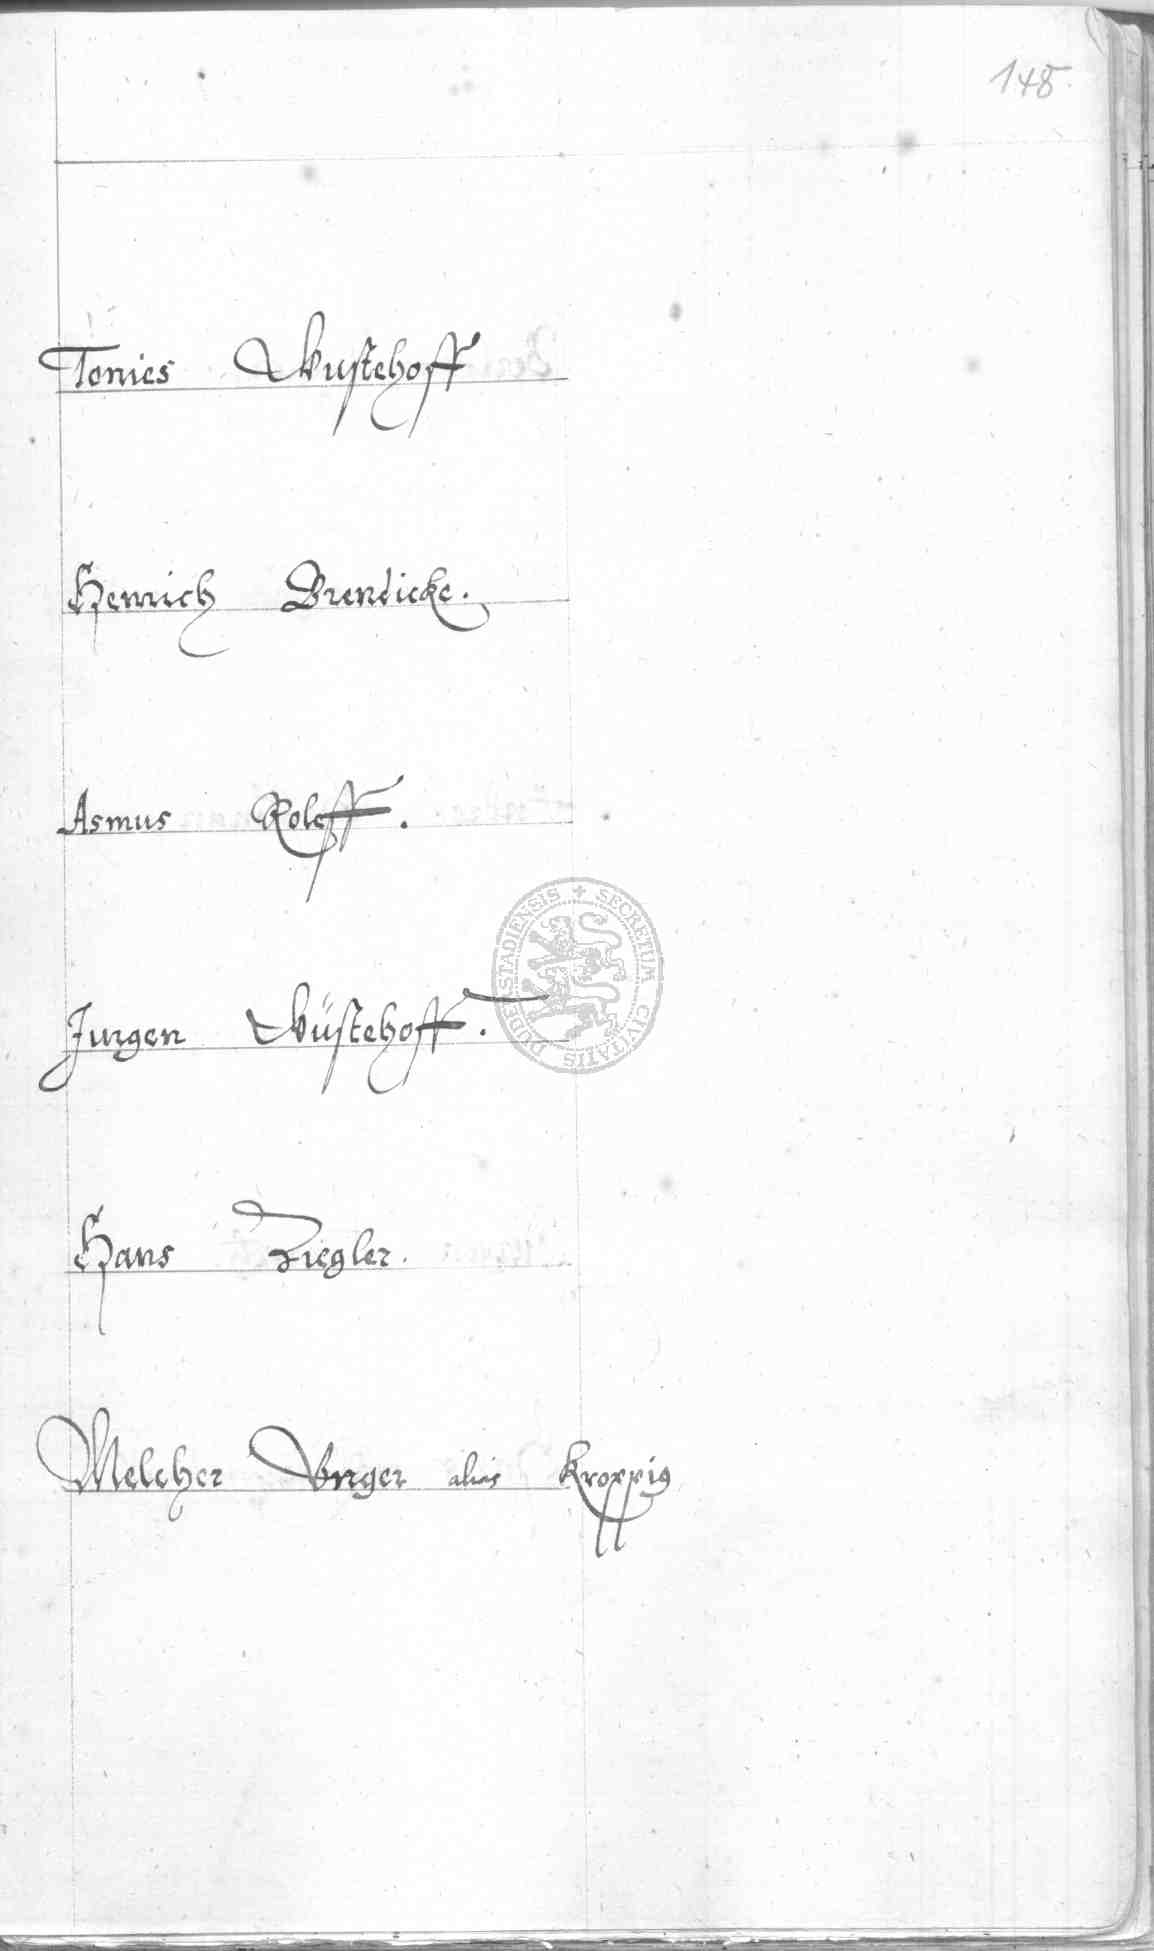 148.
Tonies Wustehoff
Henrich Brendicke.
Asmus Roleff.
SECRETUM CIVITATIS DUDERSTADIENSIS
Jurgen Wüstehoff.
Hans Ziegler.
Melcher Vnger alias Kroppig